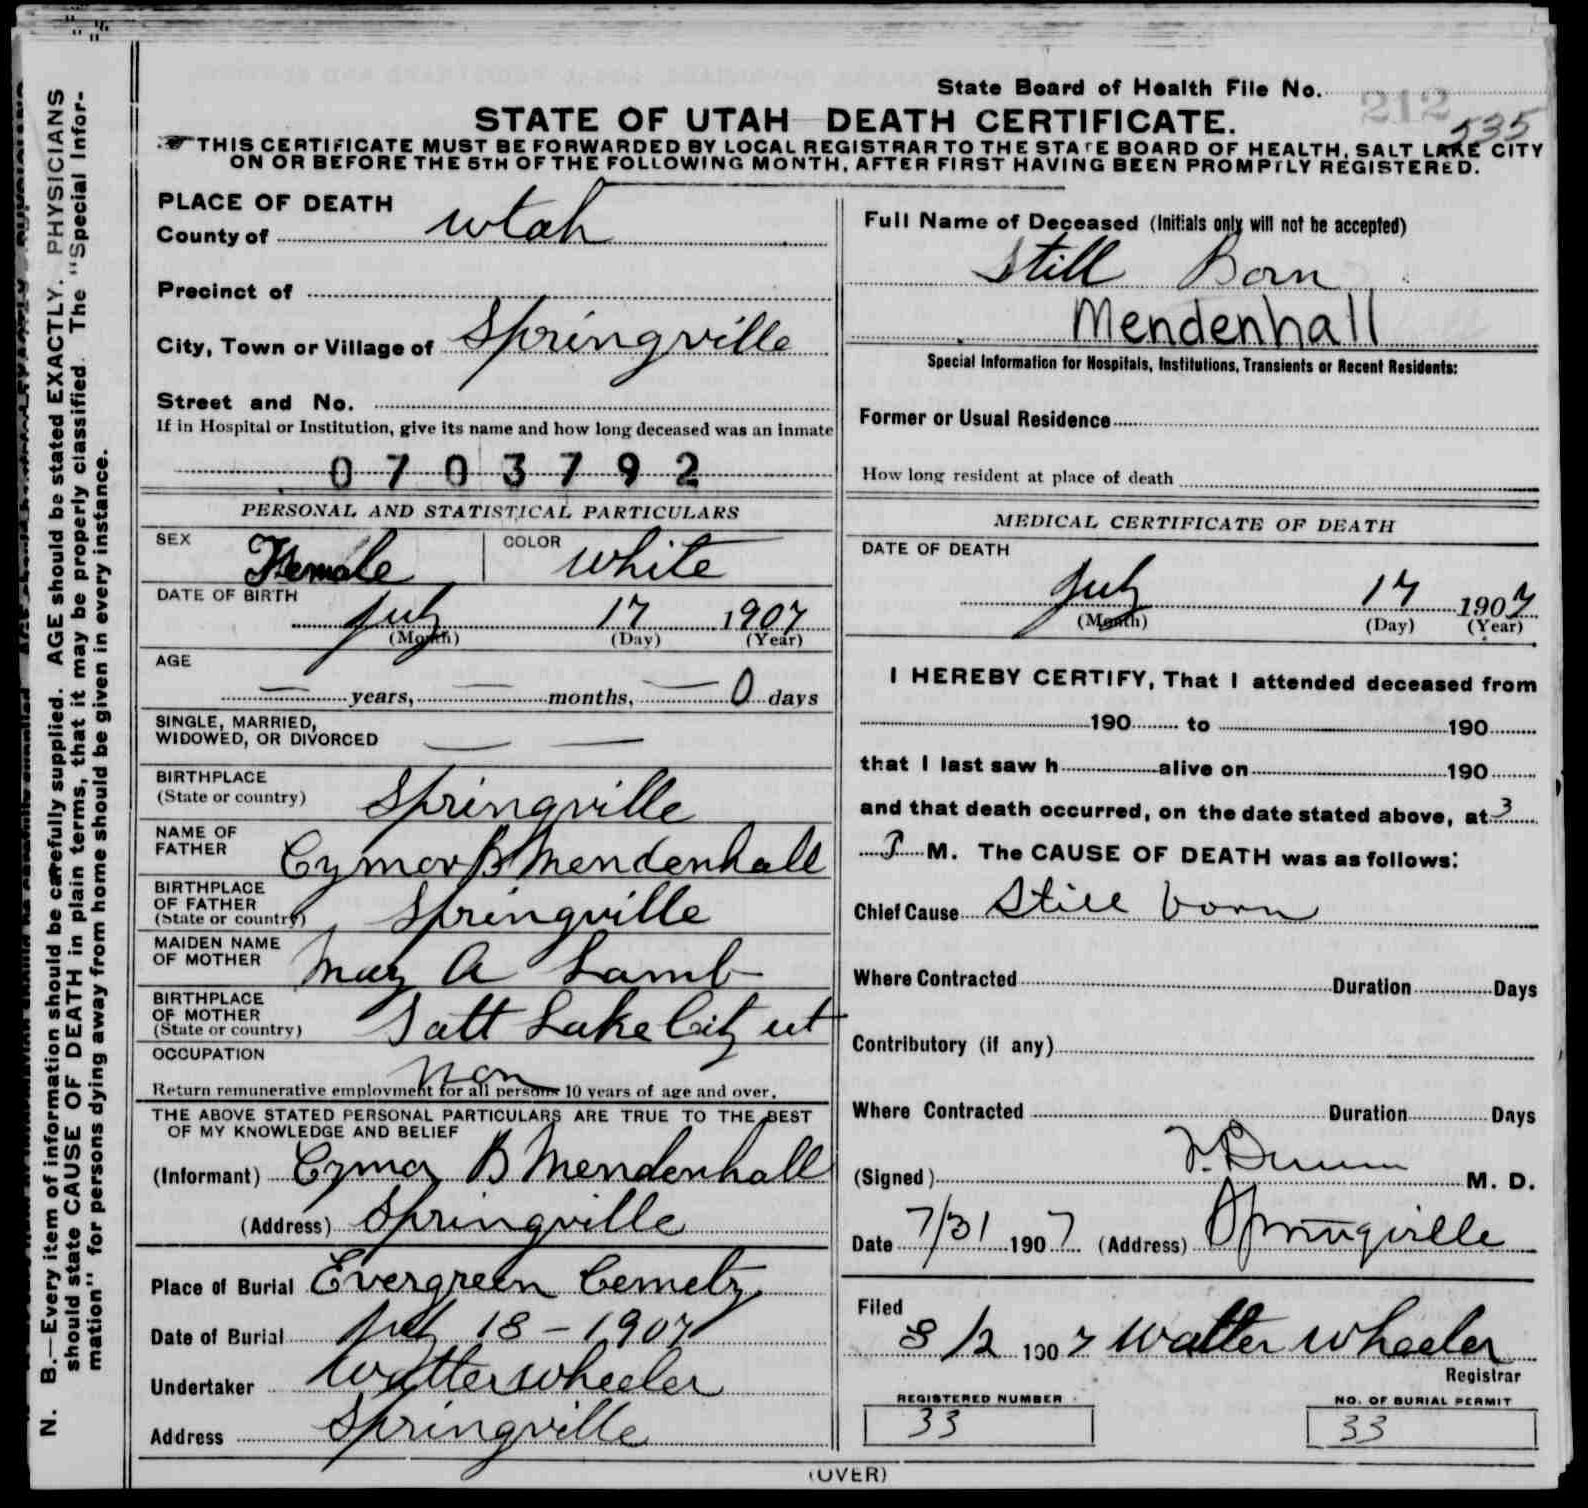 State Board of Health File No. 212
535
STATE OF UTAH DEATH CERTIFICATE.
THIS CERTIFICATE MUST BE FORWARDED BY LOCAL REGISTRAR TO THE STATE BOARD OF HEALTH, SALT LAKE CITY
ON OR BEFORE THE 5TH OF THE FOLLOWING MONTH, AFTER FIRST HAVING BEEN PROMPTLY REGISTERED.
N. B.—Every item of information should be carefully supplied. AGE should be stated EXACTLY. PHYSICIANS
should state CAUSE OF DEATH in plain terms, that it may be properly classified. The "Special Infor-
mation" for persons dying away from home should be given in every instance.
PLACE OF DEATH
County of Utah
Precinct of
City, Town or Village of Springville
Street and No.
If in Hospital or Institution, give its name and how long deceased was an inmate
0703792
PERSONAL AND STATISTICAL PARTICULARS
SEX Female COLOR White
DATE OF BIRTH
July 17 1907
(Month) (Day) (Year)
AGE
— years, — months, — 0 days
SINGLE, MARRIED,
WIDOWED, OR DIVORCED — —
BIRTHPLACE
(State or country) Springville
NAME OF
FATHER Cymor B Mendenhall
BIRTHPLACE
OF FATHER
(State or country) Springville
MAIDEN NAME
OF MOTHER May A Lamb
BIRTHPLACE
OF MOTHER
(State or country) Salt Lake City ut
OCCUPATION Non
Return remunerative employment for all persons 10 years of age and over.
THE ABOVE STATED PERSONAL PARTICULARS ARE TRUE TO THE BEST
OF MY KNOWLEDGE AND BELIEF
(Informant) Cymor B Mendenhall
(Address) Springville
Place of Burial Evergreen Cemety
Date of Burial July 18 - 1907
Undertaker Walter Wheeler
Address Springville
Full Name of Deceased (Initials only will not be accepted)
Still Born
Mendenhall
Special Information for Hospitals, Institutions, Transients or Recent Residents:
Former or Usual Residence
How long resident at place of death
MEDICAL CERTIFICATE OF DEATH
DATE OF DEATH
July 17 1907
(Month) (Day) (Year)
I HEREBY CERTIFY, That I attended deceased from
190 to 190
that I last saw h alive on 190
and that death occurred, on the date stated above, at 3
P M. The CAUSE OF DEATH was as follows:
Chief Cause Still born
Where Contracted Duration Days
Contributory (if any)
Where Contracted Duration Days
(Signed) M. D.
Date 7/31 1907 (Address) Springville
Filed
8/2 1907 Walter Wheeler
Registrar
REGISTERED NUMBER
33
NO. OF BURIAL PERMIT
33
(OVER)